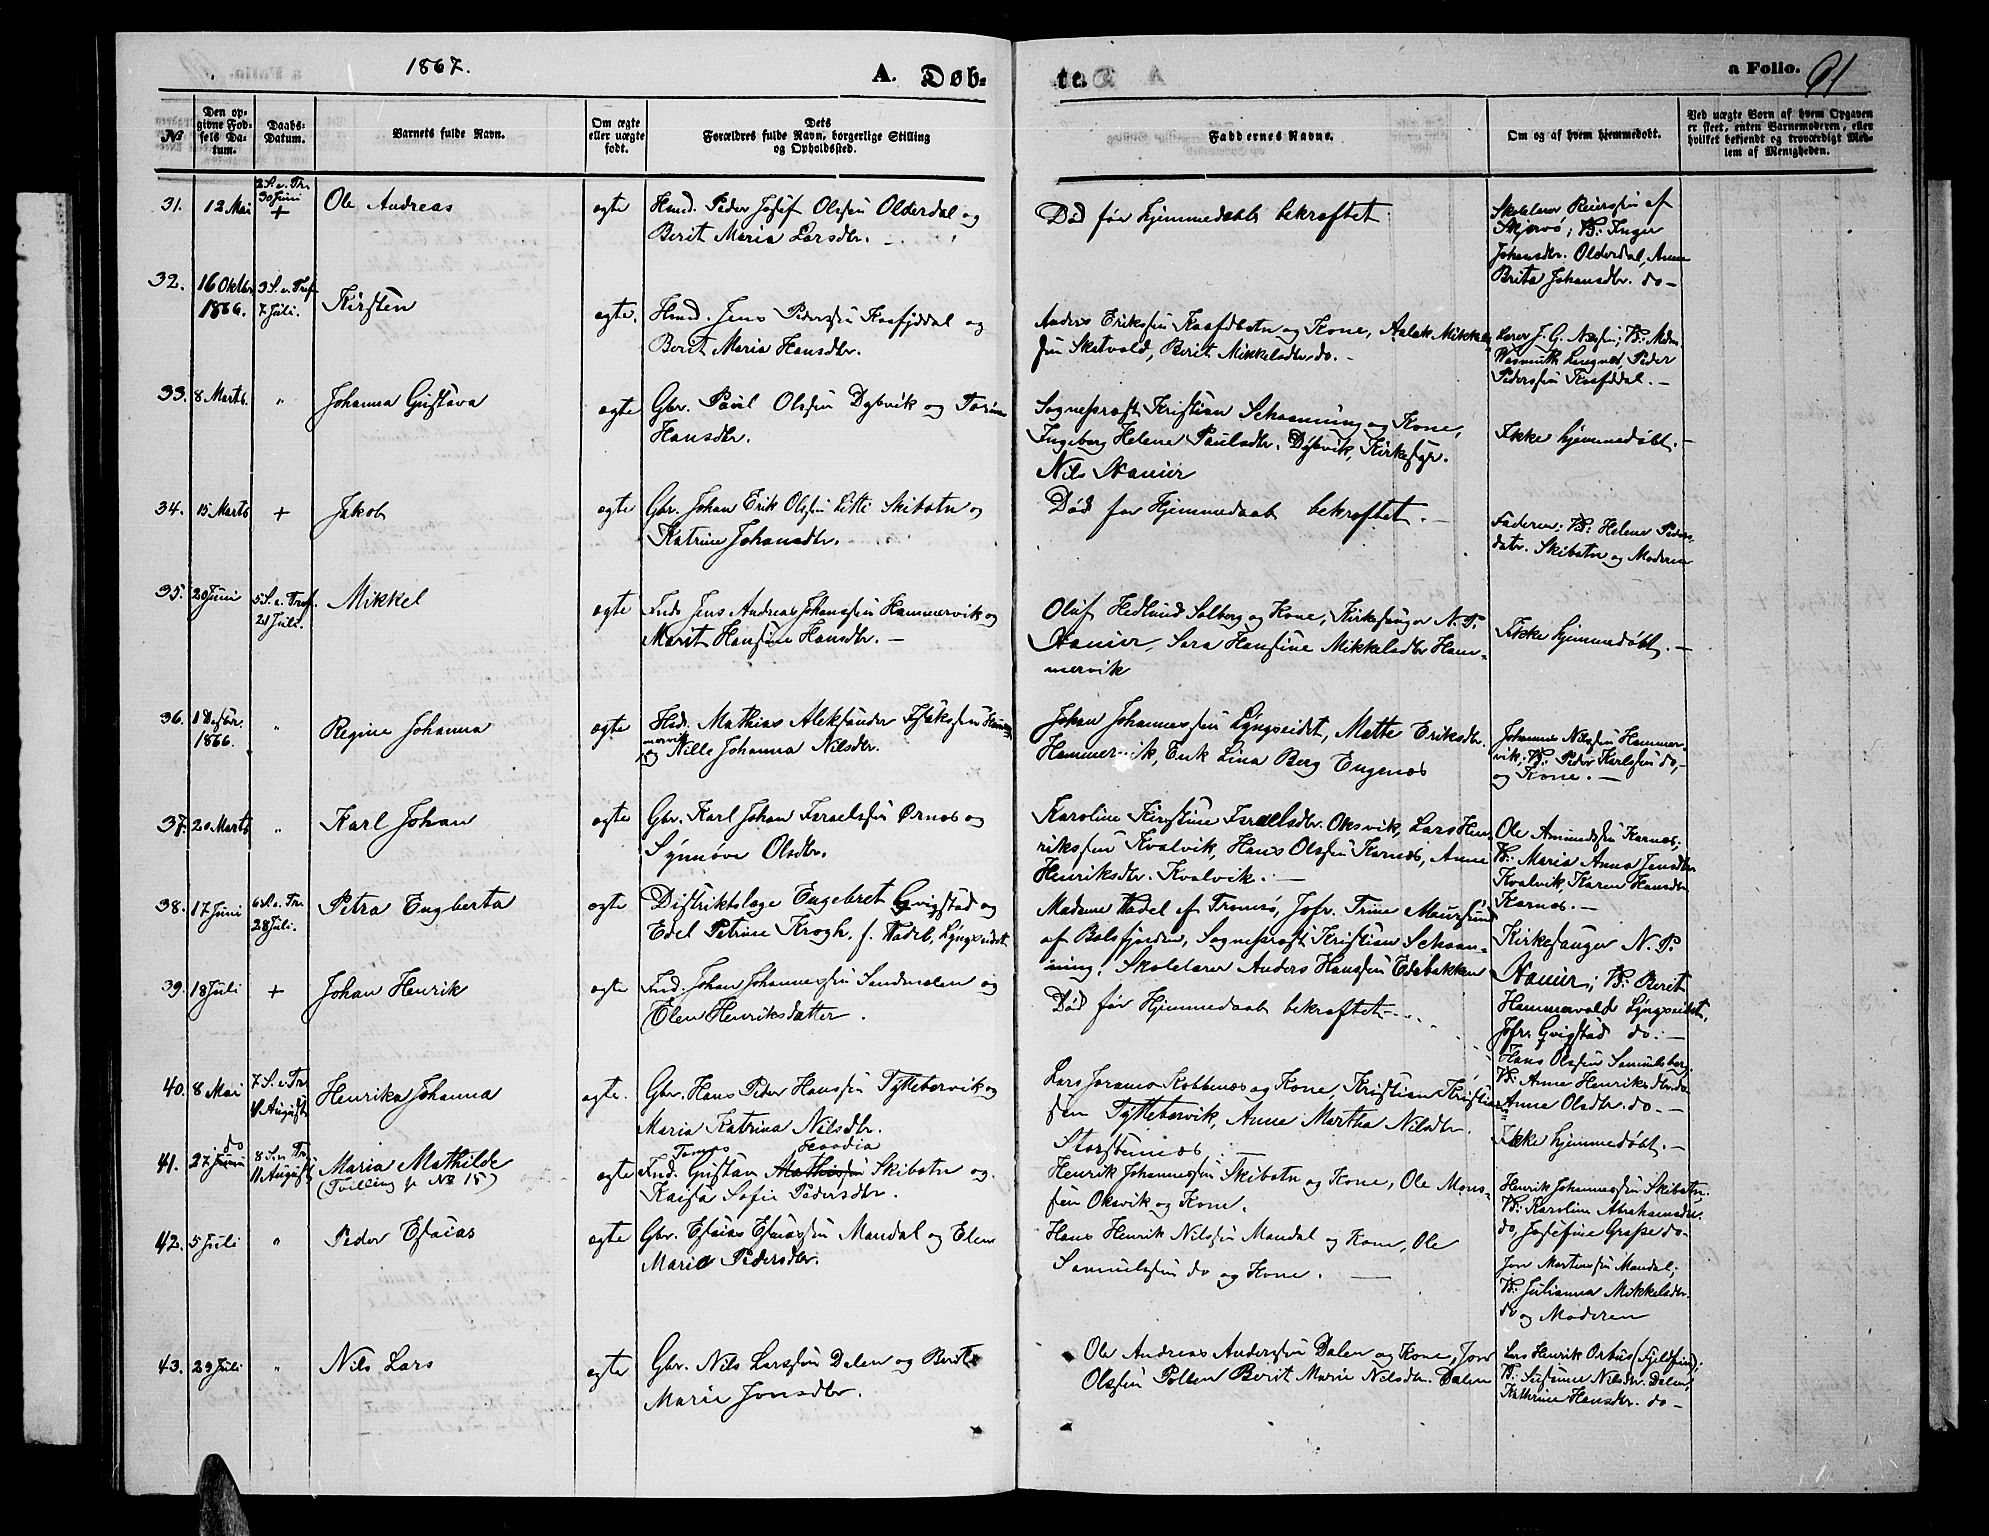 1867.
A. Døb-
te.
a Folio. 61
No
Den op-
givne Fød-
sels Da-
tum.
Daabs-
Datum.
Barnets fulde Navn.
Om ægte
eller uægte
født.
Dets
Forældres fulde Navn, borgerlige Stilling
og Opholdssted.
Faddernes Navne.
Om og af hvem hjemmedøbt.
Ved uægte Børn af hvem Opgaven
er skeet, enten Barnemoderen, eller
hvilket bekjendt og troværdigt Med-
lem af Menigheden.
31.
12 Mai
2 S. e. Tr.
30 Juni
+
Ole Andreas
ægte
Hmd. Peder Josef Olssen Olderdal og
Berit Maria Larsdtr. –
Død før Hjemmedaab bekræftet
Skolelærer Reiersen af
Skjervø; V: Inger
Johansdtr. Olderdal, Anne
Brita Johansdtr. do –
32.
16 Oktbr
1866.
3 S. e. Tref.
7 Juli.
Kirsten
ægte.
Hmd. Jens Pederssen Kaafjddal og
Berit Maria Hansdtr.
Anders Erikssen Kaafdbotn og Kone, Aslak Mikkels
sen Skatvold, Berit Mikkelsdtr do. –
Lærer J. G. Nilssen; V: Mdm.
Wasmuth Lyngseid, Peder
Pederssen Kaafddal. –
33.
8 Marts.
"
Johanna Gustava
ægte
Gbr. Paul Olssen Dybvik og Torine
Hansdtr.
Sognepræst Kristian Schaanning og Kone,
Ingeborg Helene Paulsdtr. Dybvik, Kirkesgr.
Nils Hamier
Ikke hjemmedøbt. –
34.
15 Marts
+
Jakob
ægte
Gbr. Johan Erik Olssen Litti Skibotn og
Katrine Johansdtr.
Død før Hjemmedaab bekræftet. –
Faderen; V: Helene Peders-
datr. Skibotn og Moderen
35.
20 Juni
5 S. e. Tref.
21 Juli.
Mikkel
ægte
Ind. Jens Andreas Johanssen Hammervik og
Marit Hansine Hansdtr. –
Oluf Hedlund Solberg og Kone, Kirkesanger N. P.
Hamier, Sara Hansine Mikkelsdtr Ham-
mervik
Ikke hjemmedøbt. –
36.
1 Desbr.
1866.
"
Regine Johanna
ægte
Hsd. Mathias Aleksander Isakssen Ham-
mervik
og Nille Johanna Nilsdtr.
Johan Johannessen Lyngseidet, Mathe Eriksdtr.
Hammervik, Enk Lina Berg Engenes
Johannes Nilssen Hammer-
vik; V: Peder Karlssen do,
og Kone. –
37.
20 Marts
"
Karl Johan
ægte
Gbr. Karl Johan Israelssen Ørnes og
Synnøve Olsdtr.
Karoline Kirstine Israelsdtr. Oksvik, Lars Hen-
rikssen Kvalvik, Hans Olssen Karnes, Anne
Henriksdtr. Kvalvik. –
Ole Amundssen Karnes;
V: Maria Anna Jensdtr
Kvalvik, Karen Hansdtr
Karnes. –
38.
17 Juni
6 S. e. Tr.
28 Juli.
Petra Engberta
ægte
Distriktslæge Engebret Gvigstad og
Edel Petrine Krogh f. Hadel, Lyngseidet
Madame Hadel af Tromsø, Jofr. Trine Maursund
af Balsfjorden, Sognepræst Kristian Schaan-
ning, Skolelærer Anders Hanssen Edsbakken
Kirkesanger N. P.
Hamier; V: Berit
Hammervold Lyngseidet,
Jofr. Gvigstad do. –
39.
18 Juli
+
Johan Henrik
ægte
Ind. Johan Johannessen Sandmælen og
Elen Henriksdatter.
Død før Hjemmedaab bekræftet. –
Hans Olssen Samuelsberg.
V: Anne Henriksdtr. do
Anna Olsdtr. do. –
40.
8 Mai
7 S. e. Tr.
4 August
Henrika Johanna
ægte.
Gbr. Hans Peder Hanssen Tyttebærvik og
Maria Katrina Nilsdtr.
Lars Joramo Kobbenes og Kone, Kristian Kristian-
sen Tyttebærvik, Anne Martha Nilsdtr.
Storstennes
Ikke hjemmedøbt. –
41.
27 Juni
do
8 S. e. Tr.
11 August
Maria Mathilde
(Tvilling jr No 15)
ægte
Ind. Gustav Mathissen Skibotn og
Kaisa Sofie Pedersdtr.
Henrik Johannessen Skibotn og Kone, Ole Mons-
sen Oksvik og Kone.
Henrik Johannessen Skibotn.
V: Karoline Abrahamsdtr.
do, Josefine Grape do –
42.
5 Juli
"
Peder Esaias
ægte
Gbr. Esaias Esaiassen Mandal og Elen
Maria Pedersdtr.
Hans Henrik Nilssen Mandal og Kone, Ole
Samuelssen do og Kone. –
Jon Martinssen Mandal;
V: Julianna Mikkelsdtr.
do og Moderen
43.
29 Juli
"
Nils Lars
ægte
Gbr. Nils Larssen Dalen og Berit
Marie Jonsdtr.
Ole Andreas Anderssen Dalen og Kone, Jon
Olssen Pollen Berit Marie Nilsdtr. Dalen
Lars Henrik Orbus (Fjeldfin).
V: Susanne Nilsdtr. Dalen,
Kathrine Hansdtr. do –